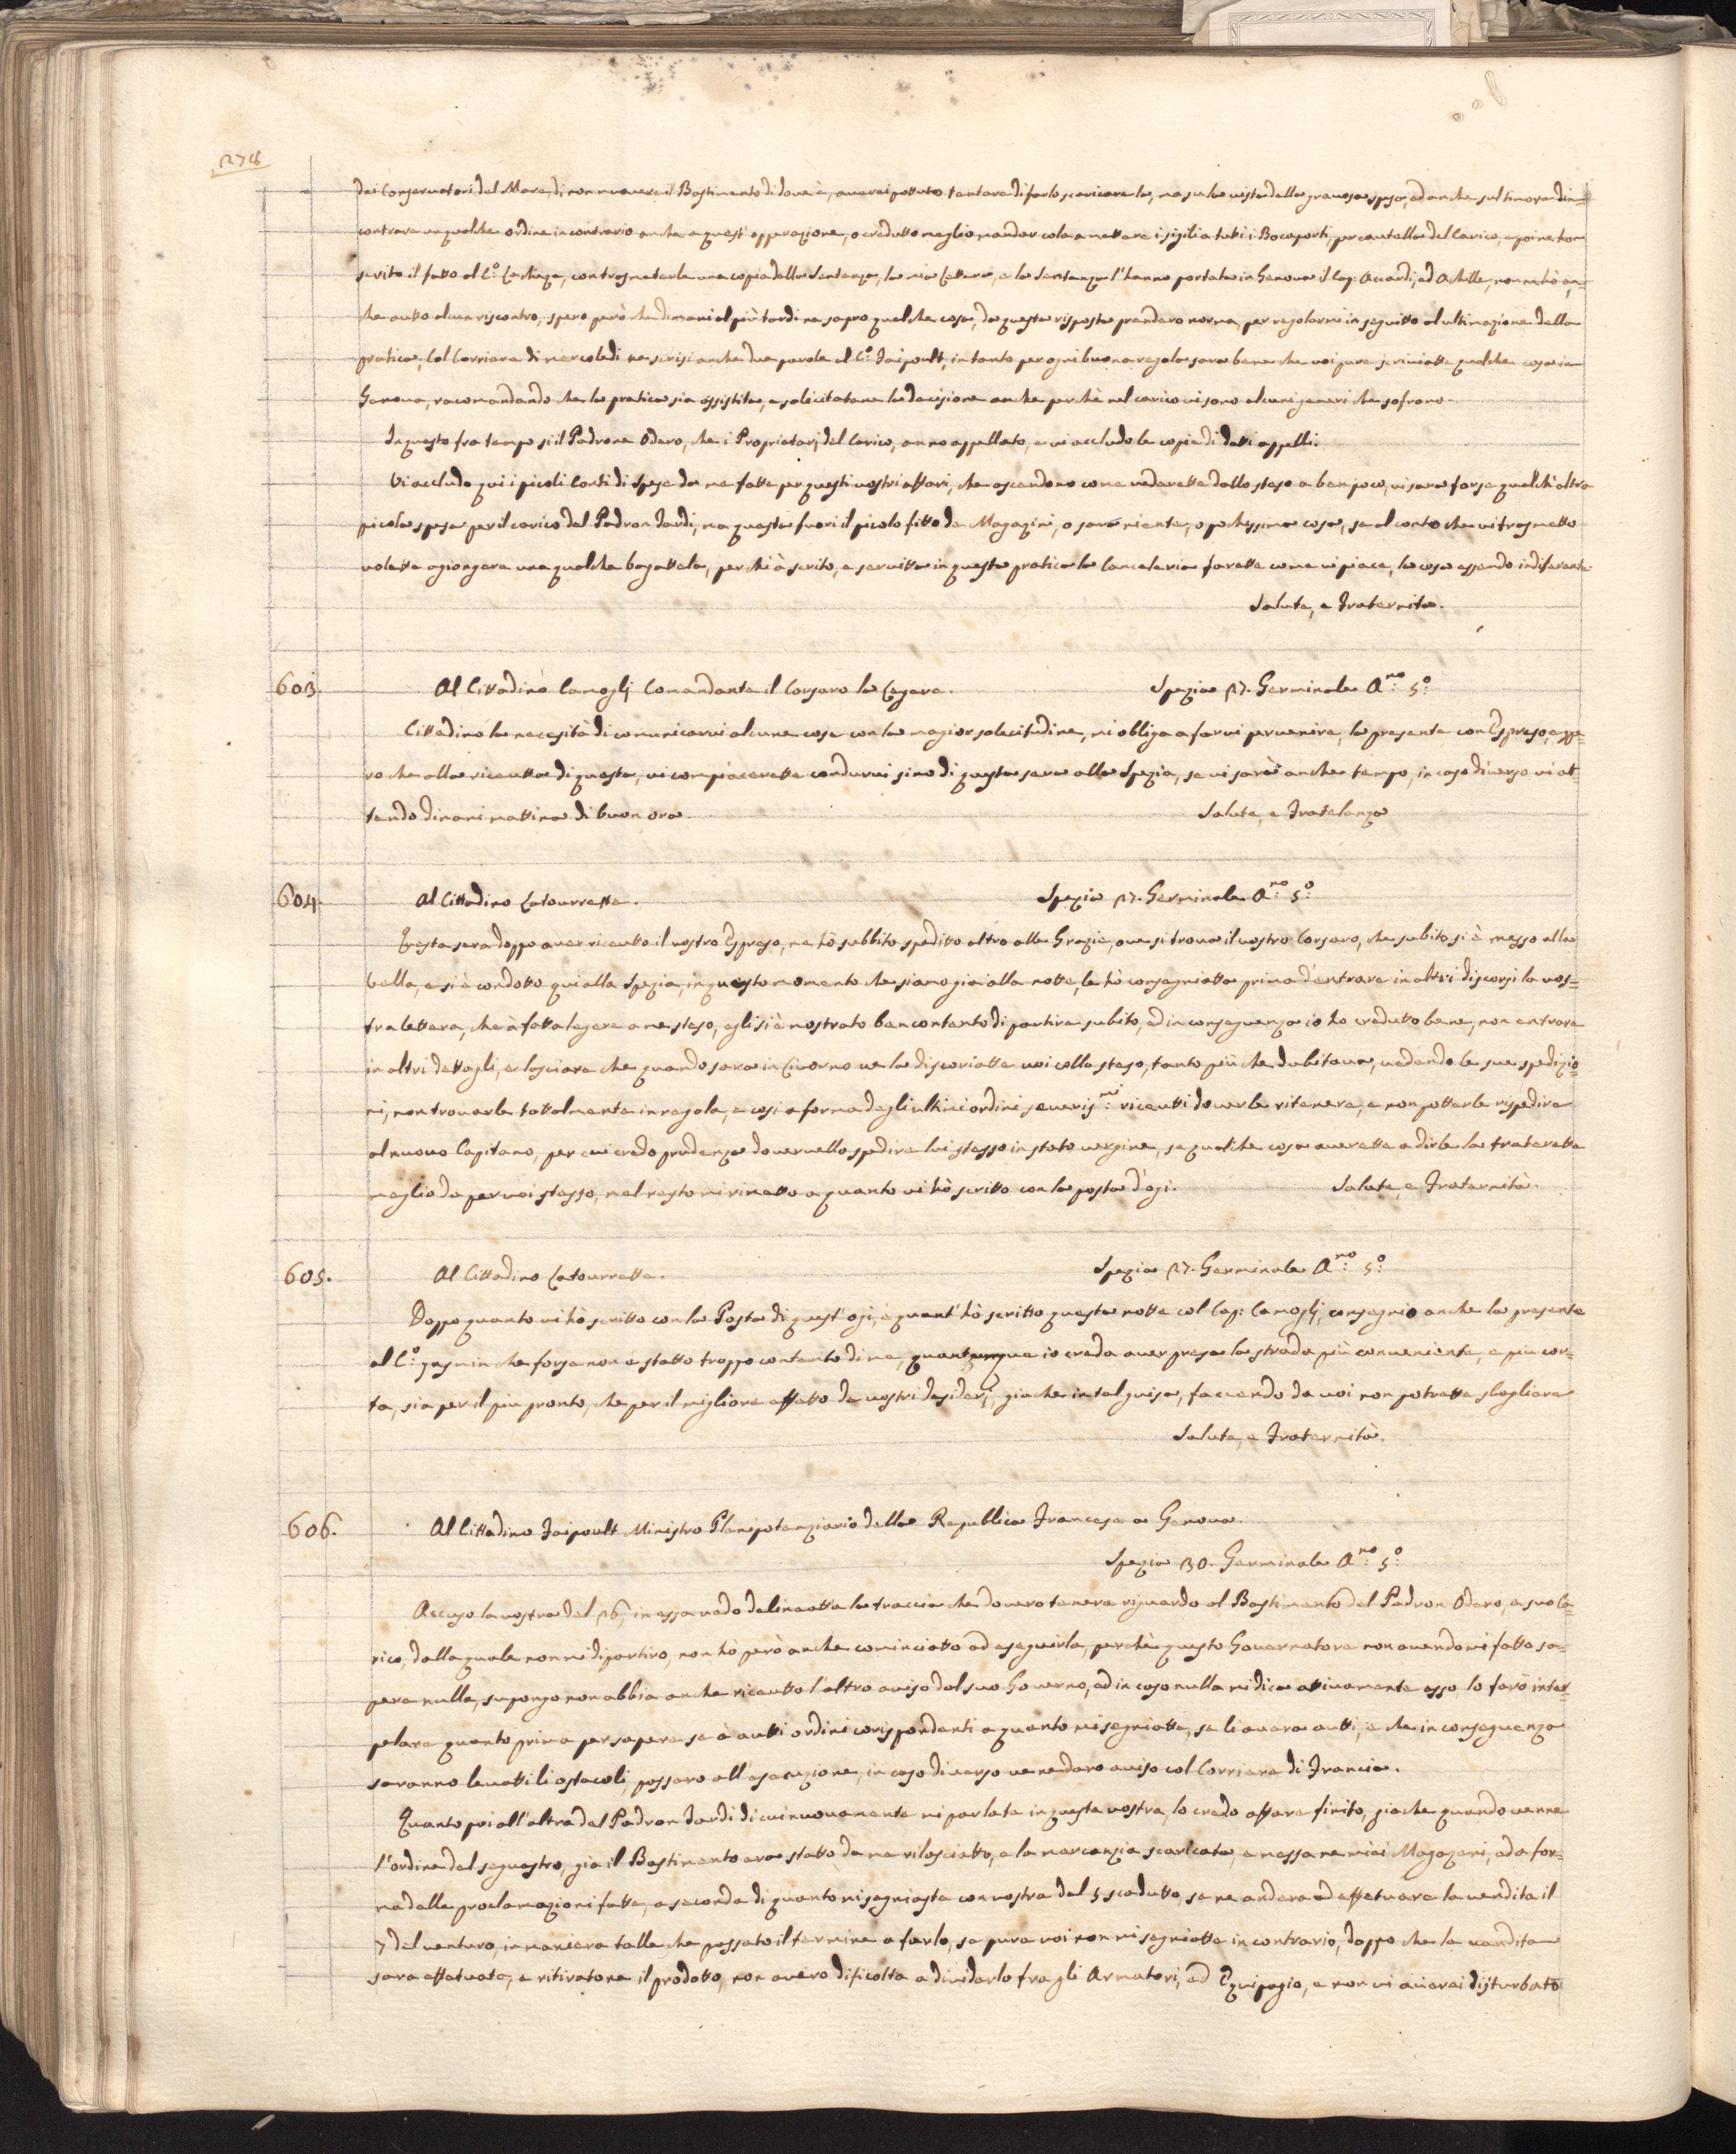 278
dei Conservatori del Mare, di non muovere il Bastimento di dove è, averei potuto tentare di farlo scaricare la, ma su la vista della gravosa spesa, ed anche sul timore din=
contrare un qualche ordine in contrario anche a quest'opperazione, o creduto meglio mandar cola a mettere i sigili a tutti i Bocaporti, per cautella del Carico, e poi ne hò
scrito il fatto al C.º La Cheze, con trasmeterle una copia della Sentenza, la mia Lettera, e la Sentenza l'hanno portata in Genova il Cap: Accardi, ed Achille, non ne hò an=
che auto alcun riscontro, spero però che dimani al più tardi ne sapro qualche cosa, da questa risposta prendero norma, per regolarmi in seguitto al ultimazione della
pratica, Col Corriere di mercoledi ne scrissi anche due parole al C.º Faipoult, in tanto per ogni buona regola sara bene che voi pure scriviatte qualche cosa in
Genova, racomandando che la pratica sia assistita, e solecitatane la decisione anche perchè nel carico vi sono alcuni generi che sofrono
In questo fra tempo si il Padrone Odero, che i Proprietarj del Carico, anno appellato, e vi accludo le copie di detti appelli.
Vi accludo qui i picoli Conti di Spese da me fatte per questi vostri affari, che ascendono come vedarette dallo steso a ben poco, vi sara forse qualch'altra
picola spesa per il carico del Padron Tardi, ma questa fuori il picolo fitto de Magazini, o sarà niente, o pochissima cosa, se al conto che vi trasmetto
volette agiongere una qualche bagattela, per chi à scrito, e servitta in questa pratica la Cancelaria farette come vi piace, la cosa essendo indiferente
Salute, e Fraternita.
603. Al Cittadino Camoglj Comandante il Corsaro la Legere. Spezia 27. Germinale A.no 5.º
Cittadino la necesità di comunicarvi alcune cose con la magior solecitudine, mi obliga a farvi pervenire, la presente con Espreso, e spe=
ro che alla riceutta di questa, vi compiacerette condurvi sino di questa sera alla Spezia, se vi sarà anche tempo, in caso diverso vi at=
tendo dimani mattina di buon ora. Salute, e Fratelanza
604. Al Cittadino Latourrette. Spezia 27. Germinale A.no 5.º
Questa sera doppo aver riceutto il vostro Espreso, ne hò subbito spedito altro alle Grazie, ove si trova il vostro Corsaro, che subito si è messo alla
vella, e si è condotto qui alla Spezia, in questo momento che siamo gia alla notte, le hò consegniatta prima d'entrare in altri discorsi la vos=
tra lettera, che à fatta legere a me steso, egli si è mostrato ben contento di partire subito, ed in conseguenza io ho credutto bene, non entrare
in altri dettagli, e lasciare che quando sara in Livorno ve la discoriatte voi collo steso, tanto più che dubitava, vedendo le sue spedizio=
ni, non trovarle tottalmente in regola, e cosi a forma degli ultimi ordini severis.mi riceutti doverle ritenere, e non potterle rispedire
al nuovo Capitano, per cui credo prudenza dovervello spedire lui stesso in stato vergine, se qualche cosa averette a dirle la trateratte
meglio da per voi stesso, nel resto mi rimetto a quanto vi hò scritto con la posta d'ogi. Salute, e Fraternità.
605. Al Cittadino Latourrette. Spezia 27. Germinale A.no 5.º
Doppo quanto vi hò scritto con la Posta di quest'ogi, e quant'hò scritto questa notte col Cap: Camoglj, consegnio anche la presente
al C.º che forse non e statto troppo contento di me, quantunque io creda aver presa la strada più conveniente, e più cor=
ta, sia per il più pronto, che per il migliore effetto de vostri desiderj, giache in tal guisa, facendo da voi non potrette sbagliare
Salute, e Fraternità.
606. Al Cittadino Faipoult Ministro Plenipotenziario della Republica Francese a Genova
Spezia 30. Germinale A.no 5.º
Accuso la vostra del 26, in essa vedo delineatta la traccia che dovero tenere riguardo al Bastimento del Padron Odero, e suo Ca=
rico, dalla quale non mi dipartiro, non hò però anche cominciatto ad eseguirla, perchè questo Governatore non avendomi fatto sa=
pere nulla, supongo non abbia anche riceutto l'altro aviso dal suo Governo, ed in caso nulla mi dica attivamente esso, lo farò inter=
pelare quanto prima per sapere se à autti ordini corispondenti a quanto mi segniatte, se li avera autti, e che in conseguenza
saranno levatti li ostacoli, passero all'esecuzione, in caso diverso ve ne daro aviso col Corriere di Francia.
Quanto poi all'altra del Padron Tardi di cui nuovamente mi parlate in questa vostra, lo credo affare finito, giache quando venne
l'ordine del sequestro, già il Bastimento era statto da me rilasciatto, e la mercanzia scaricata, e messa ne miei Magazeni, ed a for=
ma delle proclamazioni fatte, a seconda di quanto mi segniaste con vostra del 5 scadutto, se ne andera ad effetuare la vendita il
7 del venturo, in maniera talle che passato il termine a farlo, se pure voi non mi segniatte in contrario, doppo che la vendita
sara effetuata, e ritiratone il prodotto, non avero dificolta a dividerlo fra gli Armatori, ed Equipagio, e non vi averei disturbato